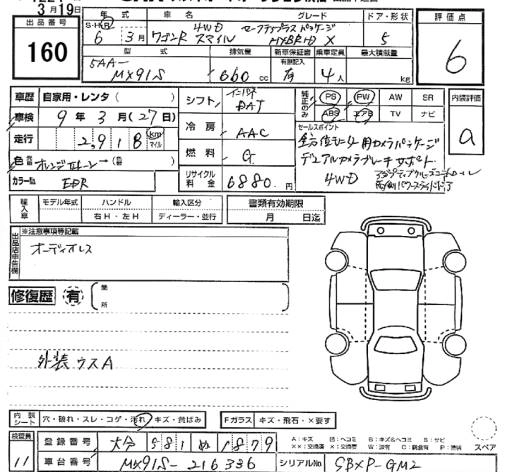 3月19日
出品番号
160
年式
車名
グレード
ドア・形状
S・H・R
6
3月
ワゴンR スマイル
4WD セーフティプラスパッケージ
HYBRID X
5
型式
排気量
新車保証書
乗車定員
最大積載量
有無記入
5AA-
MX91S
660 cc
有
4人
kg
評価点
6
車歴
自家用・レンタ( )
シフト
インパネ
DAT
純正のみ
PS
PW
AW
SR
ABS
エアB
TV
ナビ
内装評価
a
車検
9年3月(27日)
冷房
AAC
セールスポイント
全方位モニター用カメラパッケージ
デュアルカメラブレーキサポート
4WD
アダプティブクルーズコントロール
両側パワースライドドア
走行
2,918
km
マイル
燃料
G
色
(前 )
カラーNo.
リサイクル料金
6880円
輸入車
モデル年式
ハンドル
輸入区分
書類有効期限
右H・左H
ディーラー・並行
月
日迄
出品店申告欄
※注意事項等記載
オーディオレス
修復歴
有
箇所
外装 ウスA
内装シート
穴・破れ・スレ・コゲ・汚れ・キズ・黄ばみ
Fガラス
キズ・飛石・×要す
スペア
検査員
11
登録番号
581
1879
A:キズ
U:ヘコミ
B:キズ&ヘコミ
S:サビ
車台番号
MX91S-216336
シリアルNo